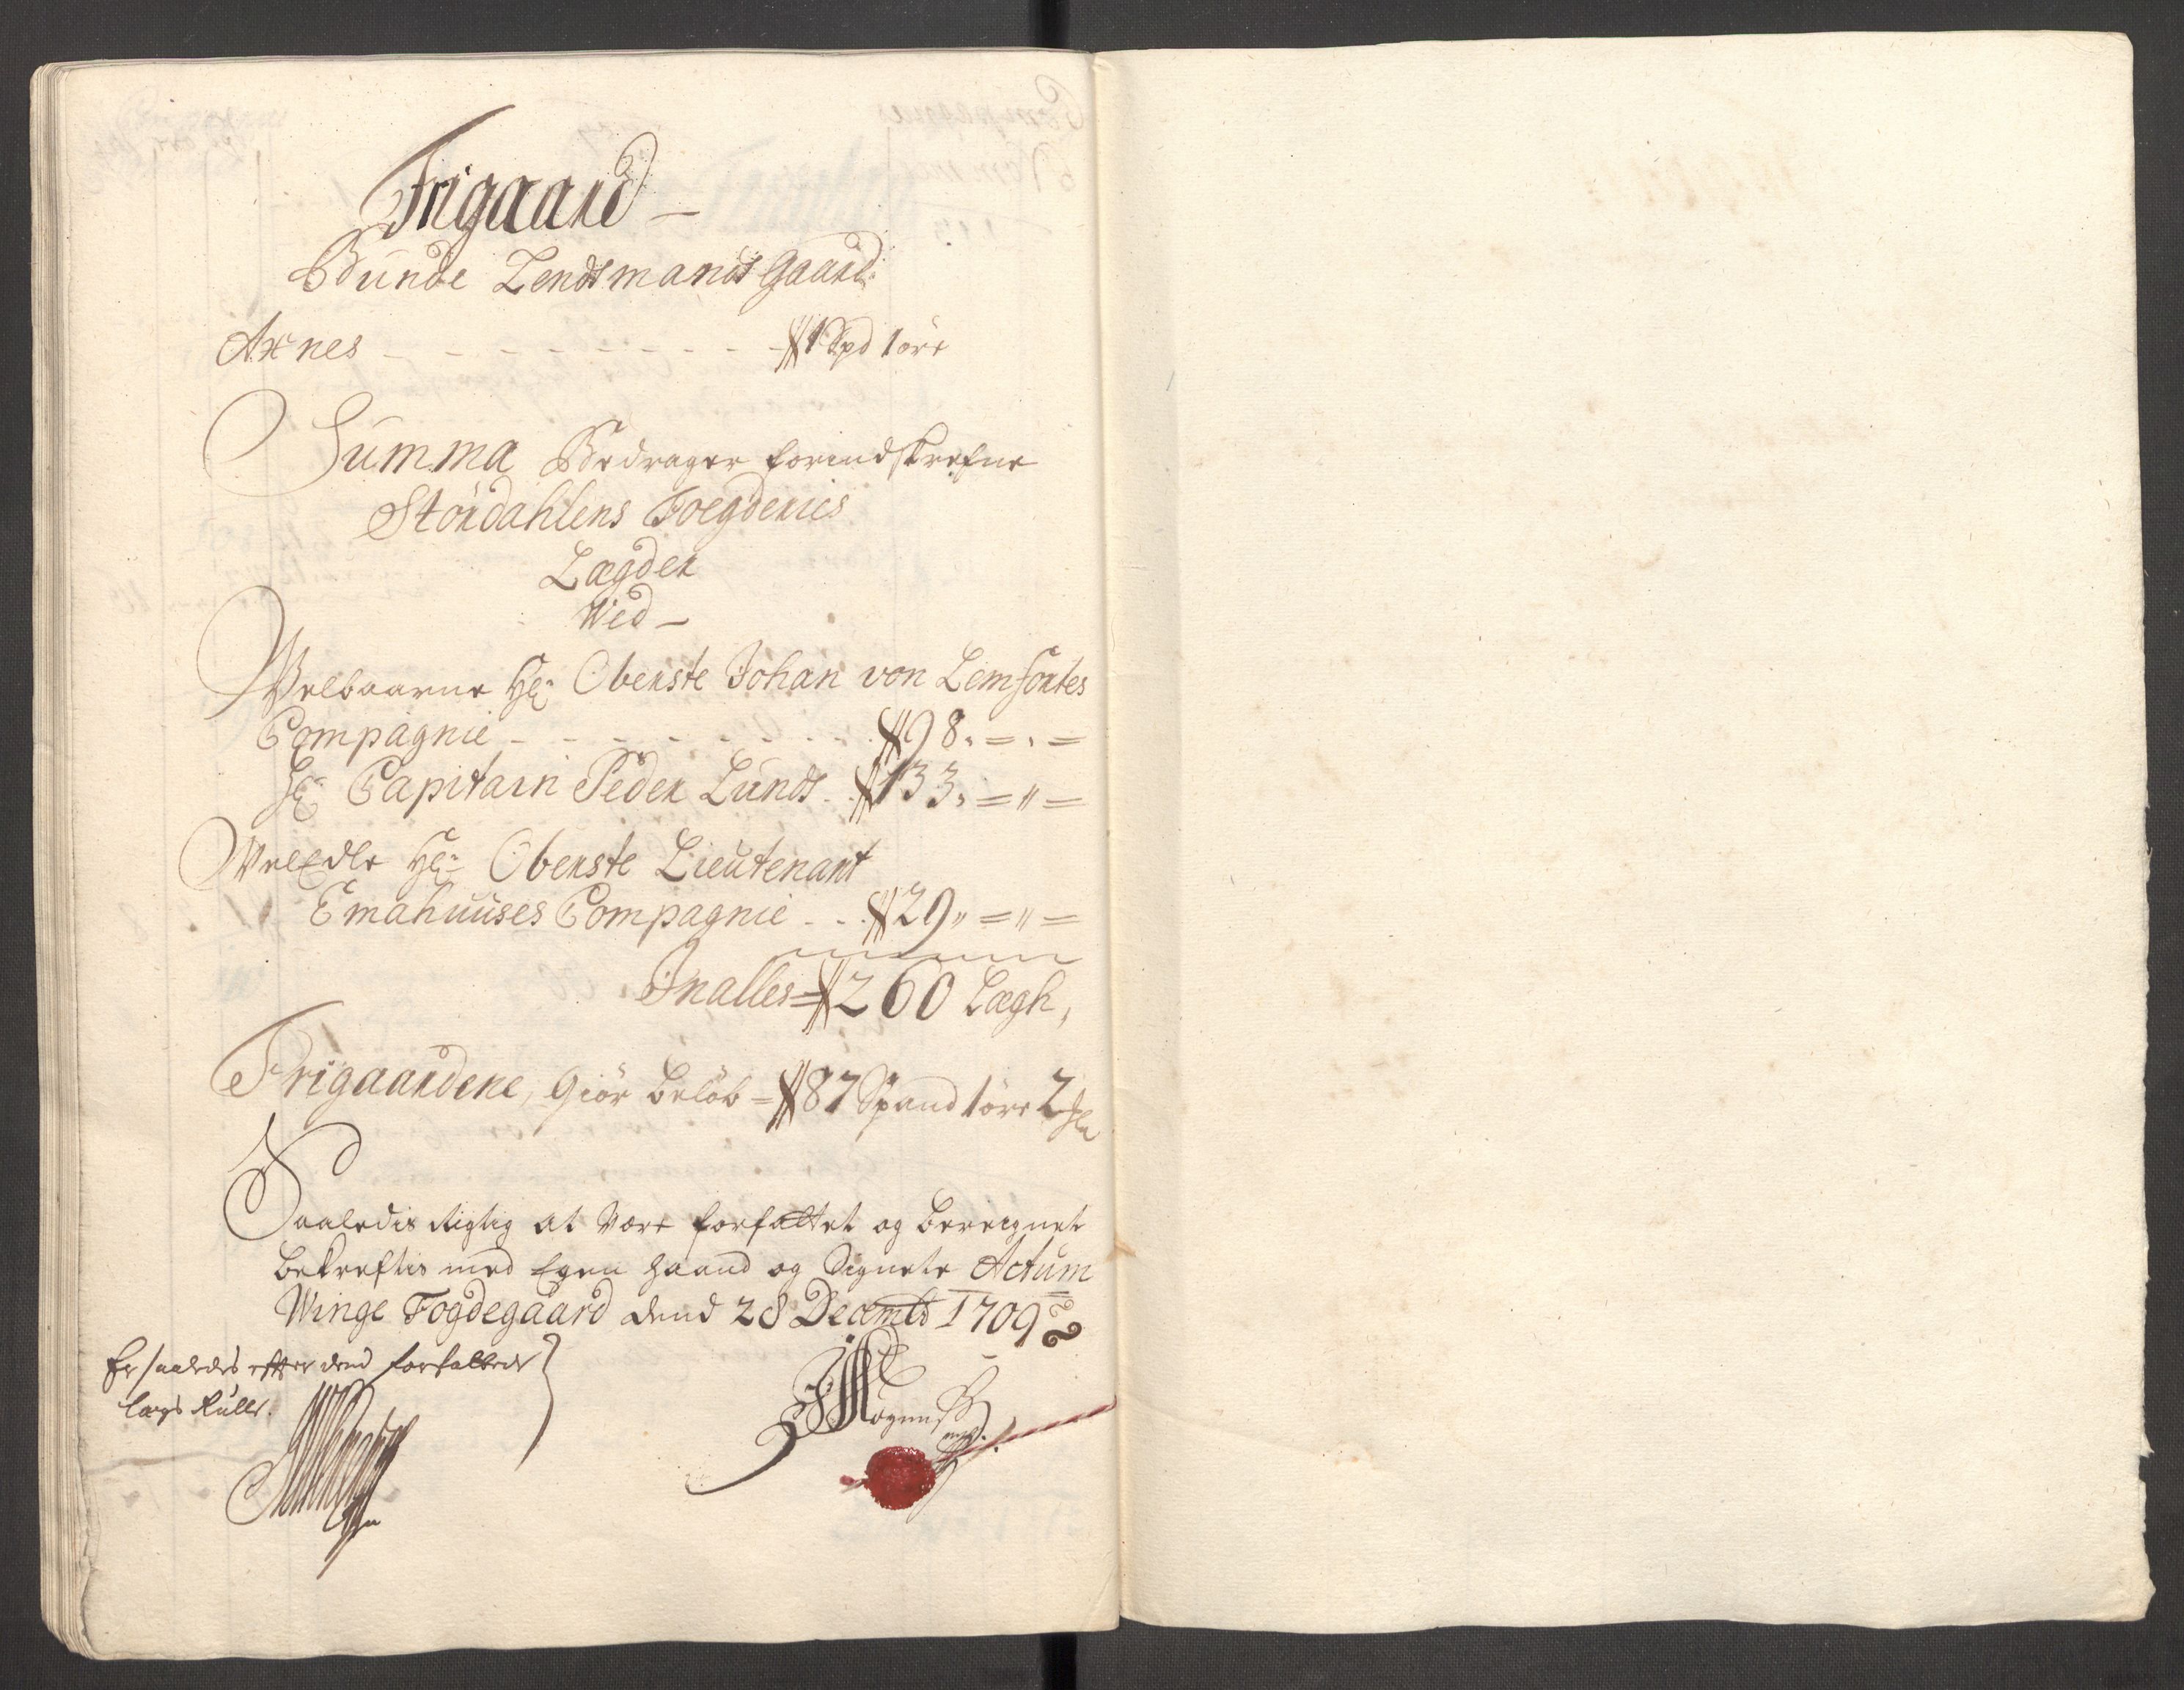 Frigaard
Bunde Lendsmands Gaard
Axnes - - - - - - - - - 1 Spd 1 öre
Summa Bedrager forindskrefne
Stördahlens Foegderies
Lægder
Wed
Welbaarne Hr: Oberste Johan von Lemfortes
Compagnie - - - - - - - 98 " = " =
Hr: Capitain Peder Lunds - 133 " = " =
WelEdle Hr: Oberste Lieutenant
Emahuuses Compagnie - - 29 " = " =
Inalles = 260 Lægh,
Frigaardene, Giör belöb = 87 Spand 1 öre 2
Saaledis Rigtig at være forfattet og beregnet
bekreftis med Egen haand og Signete Actum
Winge Fogdegaard dend 28 Decembr 1709
Er saaledes efter dend forfattede
lægs Rulle.